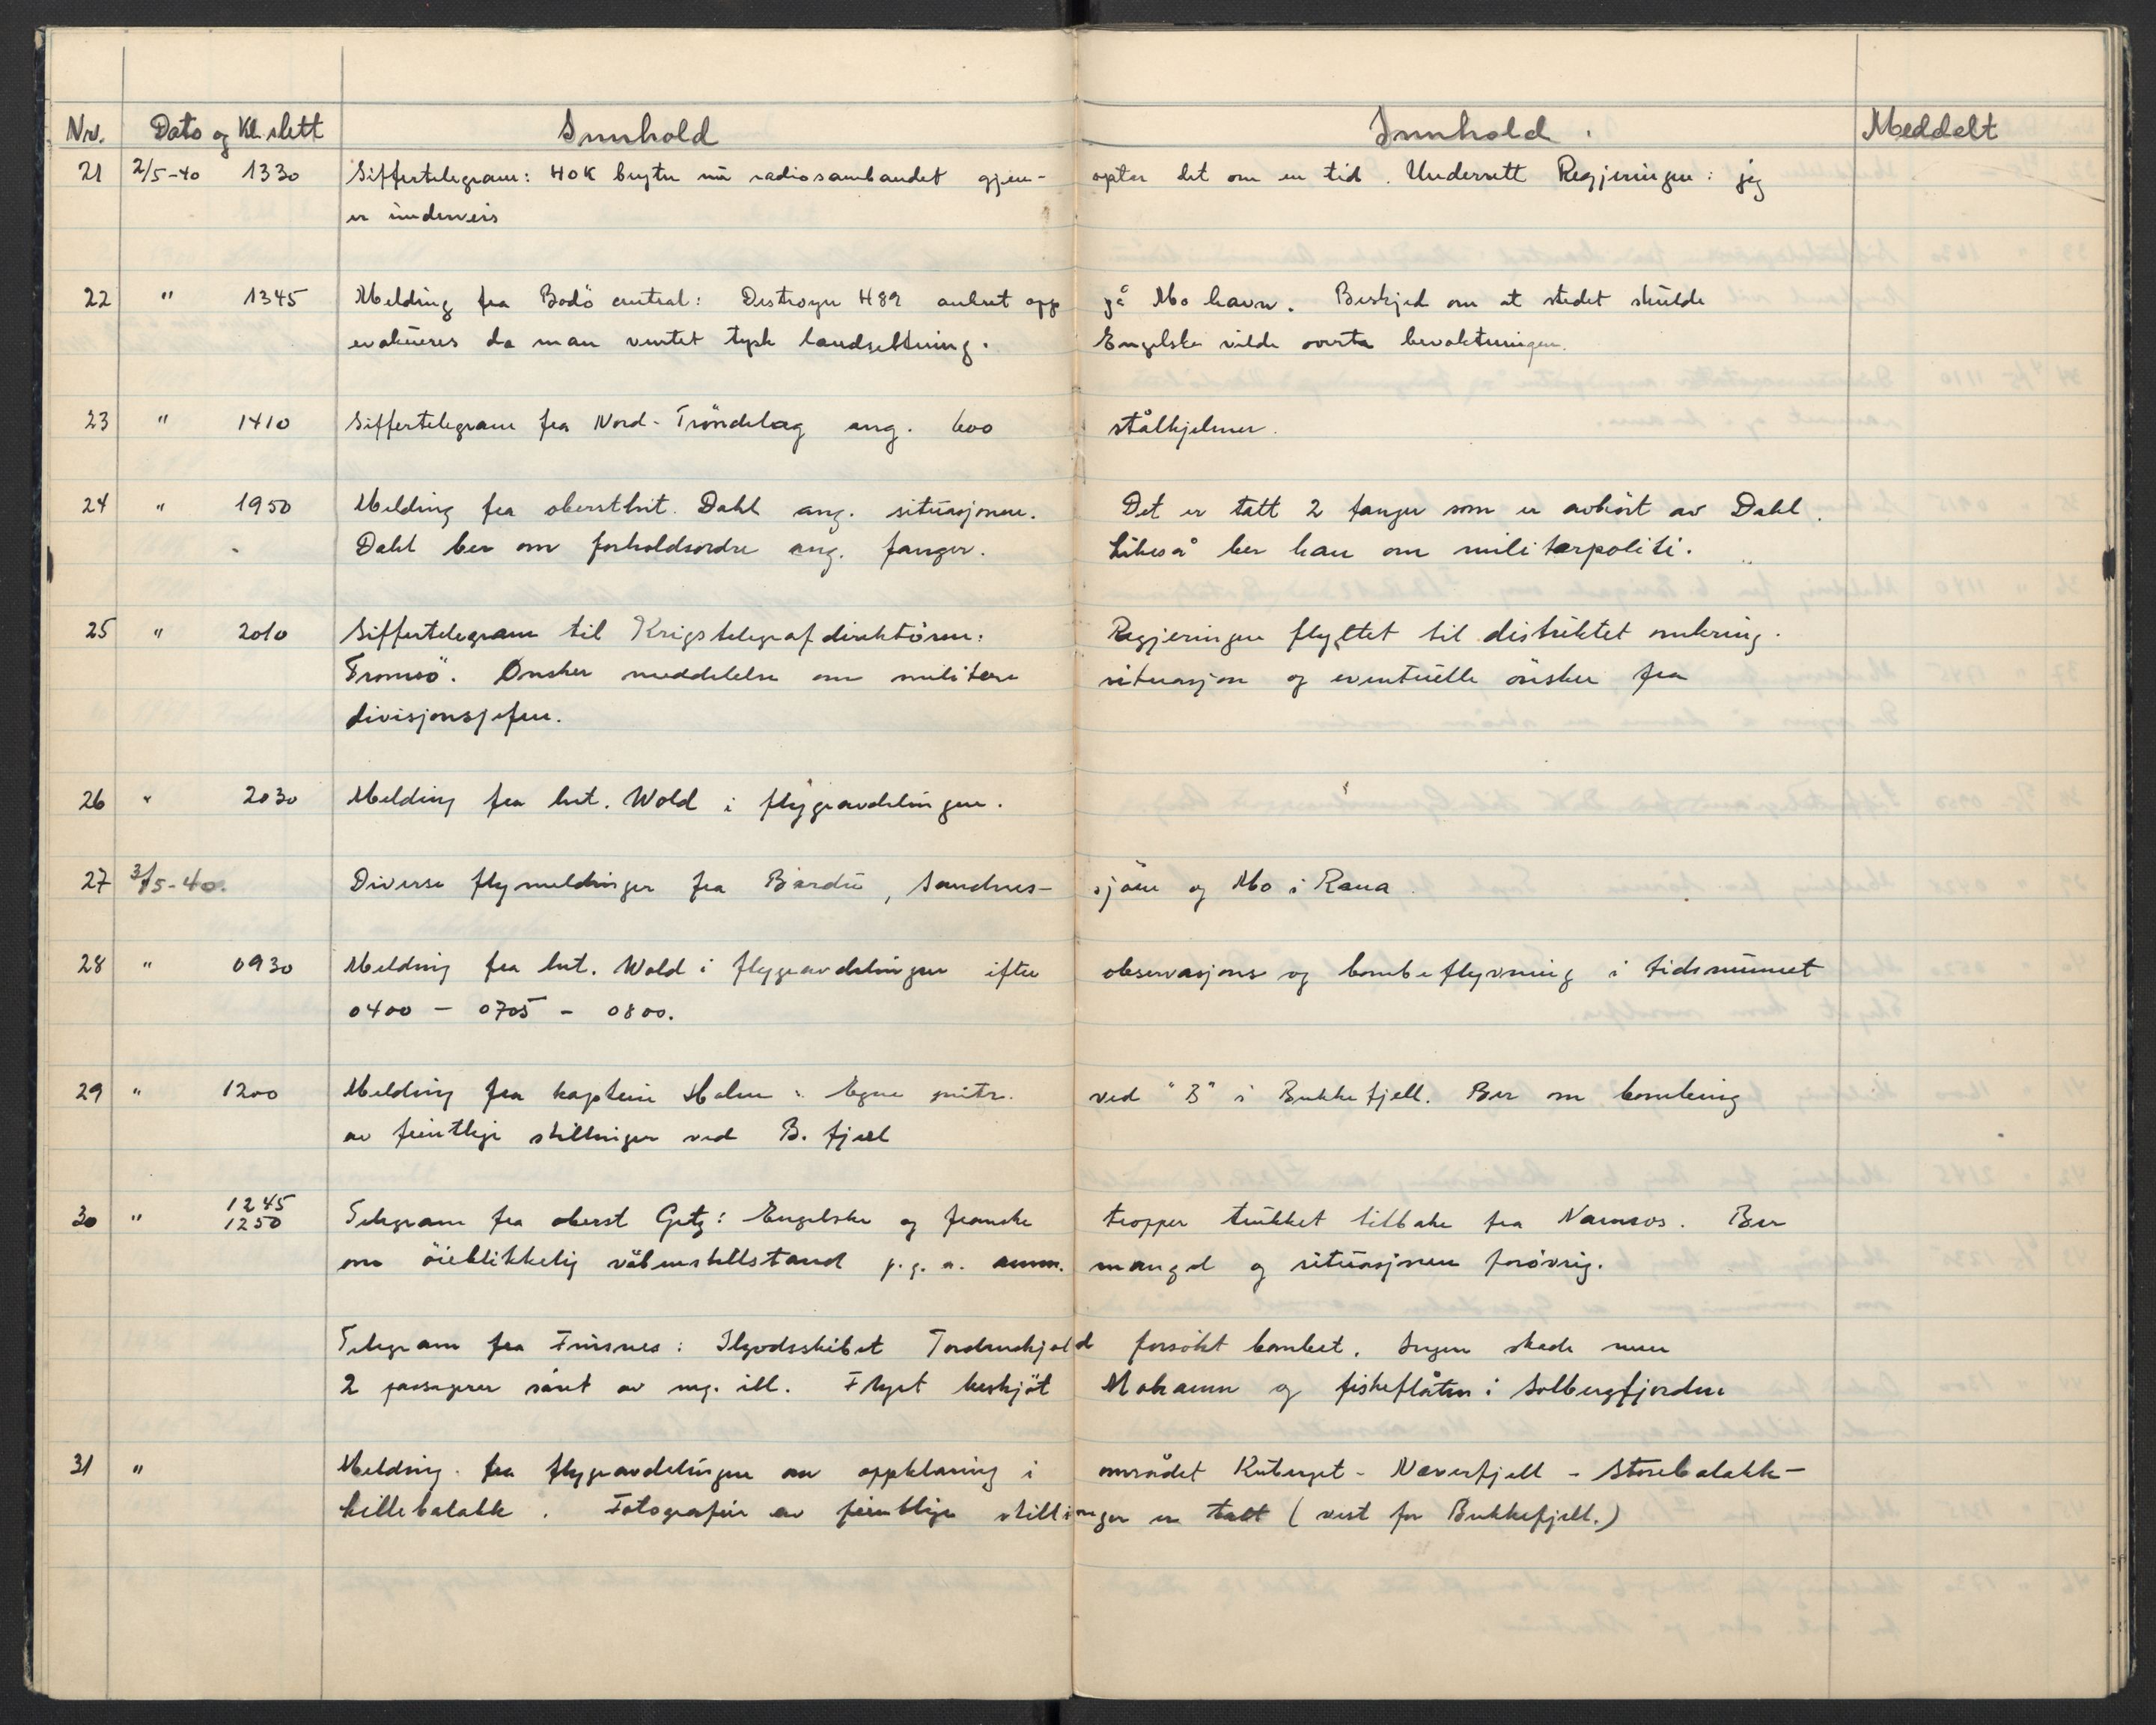 Nr. Dato og Kl.slett Innhold Innhold. Meddelt
21 2/5-40 1330 Siffertelegram: HOK bryter nu radiosambandet gjen- opter det om en tid. Underrett Regjeringen: jeg
er underveis
22 " 1345 Melding fra Bodö central: Destroyer H89 ankret opp på Mo havn. Beskjed om at stedet skulde
evakueres da man ventet tysk landsettning. Engelske vilde overta bevoktningen.
23 " 1410 Siffertelegram fra Nord-Tröndelag ang. 600 stålhjelmer.
24 " 1950 Melding fra oberstlnt. Dahl ang. situasjonen. Det er tatt 2 fanger som er avhört av Dahl.
Dahl ber om forholdsordre ang. fanger. Likeså ber han om militærpoliti.
25 " 2010 Siffertelegram til Krigstelegrafdirektören: Regjeringen flyttet til distriktet omkring
Tromsö. Ønsker meddelelse om militære situasjon og eventuelle önsker fra
divisjonssjefen.
26 " 2030 Melding fra lnt. Wold i flygeavdelingen.
27 3/5-40. Diverse flymeldinger fra Bardu, Sandnes- sjöen og Mo i Rana.
28 " 0930 Melding fra lnt. Wold i flygeavdelingen efter observasjons og bombeflyvning i tidsrummet
0400 - 0705 - 0800.
29 " 1200 Melding fra kaptein Holm: Egne mitr. ved "B" i Bukkefjell. Ber om bombing
av fientlige stillinger ved B. fjell
30 " 1245
1250 Telegram fra oberst Getz: Engelske og franske tropper trukket tilbake fra Namsos. Ber
om öieblikkelig våbenstillstand p.g.a. amm. mangel og situasjonen forövrig.
Telegram fra Finsnes: Ilgodsskibet Tordenskjold forsökt bombet. Ingen skade men
2 passagerer såret av mg. ild. Flyet beskjöt og fiskeflåten i Solbergfjorden
31 " Melding fra flygeavdelingen om oppklaring i området Kuberget - Næverfjell - Storebalakk-
Lillebalakk. Fotografier av fientlige stillinger er tatt (vest for Bukkefjell.)